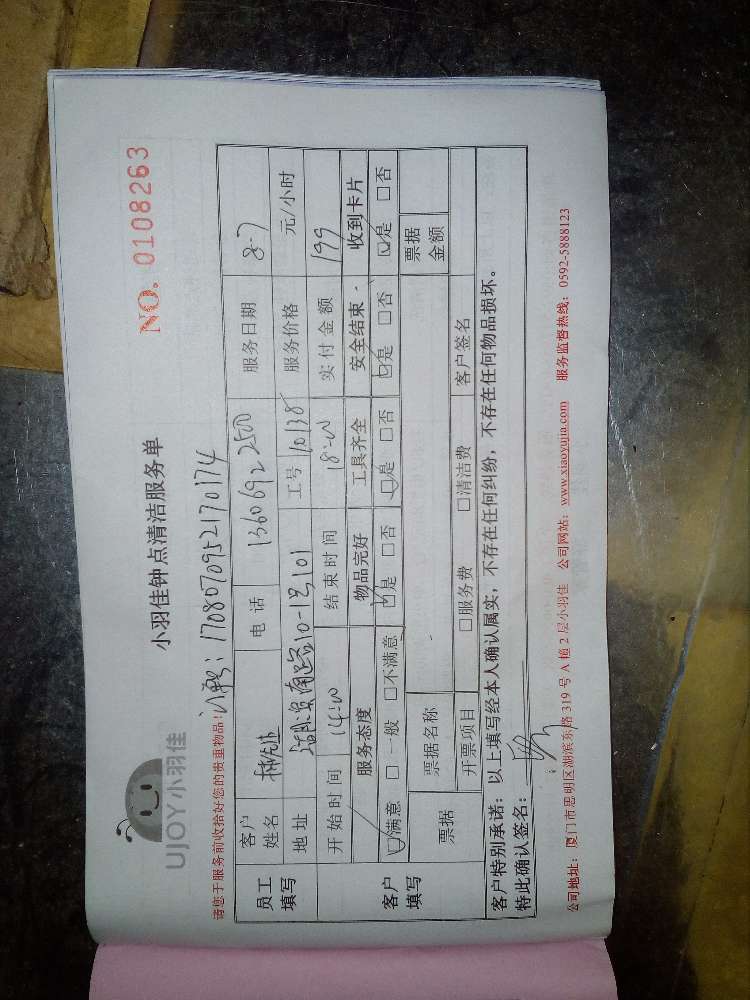 UJOY小羽佳
小羽佳钟点清洁服务单
NO. 0108263
请您于服务前收拾好您的贵重物品!
1708070952170174
员工填写
客户姓名 电话 13606922500 服务日期 8-7
地址 10-13,101 工号 10138 服务价格 元/小时
开始时间 14:00 结束时间 18:00 实付金额 199
客户填写
服务态度 物品完好 工具齐全 安全结束 收到卡片
☑满意 □一般 □不满意 ☑是 □否 ☑是 □否 ☑是 □否 ☑是 □否
票据 票据名称 票据金额
开票项目 □服务费 □清洁费 客户签名
客户特别承诺:以上填写经本人确认属实,不存在任何纠纷,不存在任何物品损坏。
特此确认签名:
公司地址:厦门市思明区湖滨东路319号A幢2层小羽佳 公司网站:www.xiaoyujia.com 服务监督热线:0592-5888123